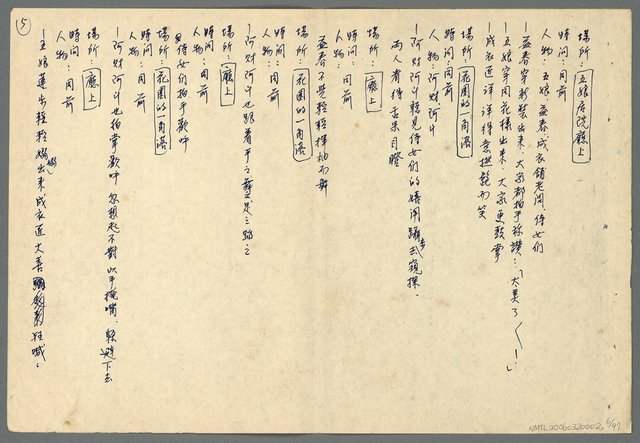 ⑤
場所：五娘府院廳上
時間：同前
人物：五娘 益春 成衣舖老闆、侍女们
—益春穿新裝出来、大家都拍手称讚：「太美了！」
—五娘穿同花樣出来、大家更鼓掌
成衣匠洋洋得意撚髭而笑
場所：花園的一角落
時间：同前
人物：阿財阿斗
—阿財阿斗聽見侍女们的嬉鬧躡去窺探、
兩人看得舌呆目瞪
場所：廳上
時间：同前
人物：同前
益春不覺輕輕揮袖而舞
場所：花園的一角落
時间：同前
人物：同前
—阿財阿斗也跟着手之舞之足之蹈之
場所：廳上
時间：同前
人物：同前
侍女们拍手歡呼
場所：花園的一角落
時间：同前
人物：同前
—阿財阿斗也拍掌歡呼 忽想起不對 以手掩嘴、躲避下去
場所：廳上
時间：同前
人物：同前
—五娘蓮步輕移出来 成衣匠大喜 狂喊、
NMTL20060320002, 6/97